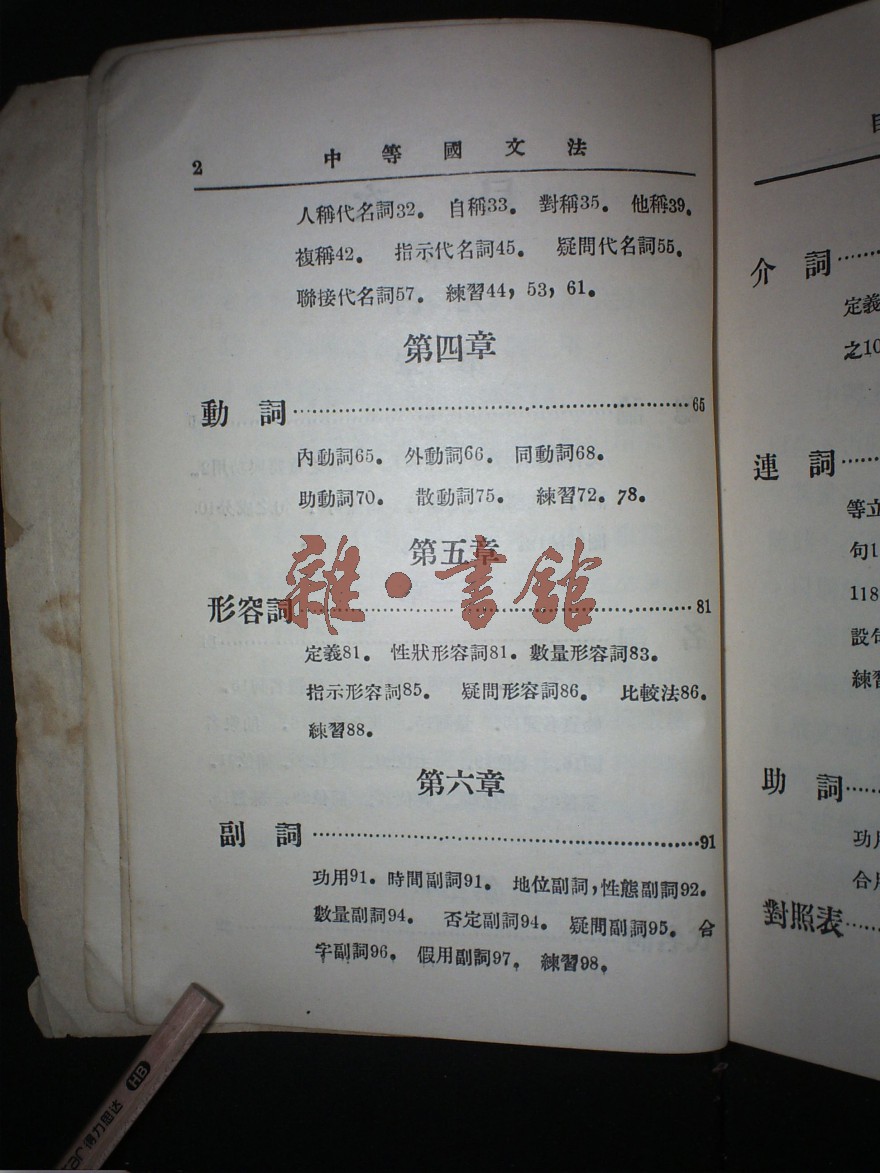 2 中等國文法
人稱代名詞32。 自稱33。 對稱35。 他稱39。
複稱42。 指示代名詞45。 疑問代名詞55。
聯接代名詞57。 練習44，53，61。
第四章
動 詞……65
內動詞65。 外動詞66。 同動詞68。
助動詞70。 散動詞75。 練習72。78。
第五章
雜·書館
形容詞……81
定義81。 性狀形容詞81. 數量形容詞83。
指示形容詞85。 疑問形容詞86。 比較法86。
練習88。
第六章
副 詞……91
功用91。時間副詞91。 地位副詞，性態副詞92。
數量副詞94。 否定副詞94。疑問副詞95。合
字副詞96。 假用副詞97。練習98。
介 詞……
定義
之10
連 詞……
等立
句1
118
設句
練習
助 詞……
功用
合用
對照表……
HB
得力